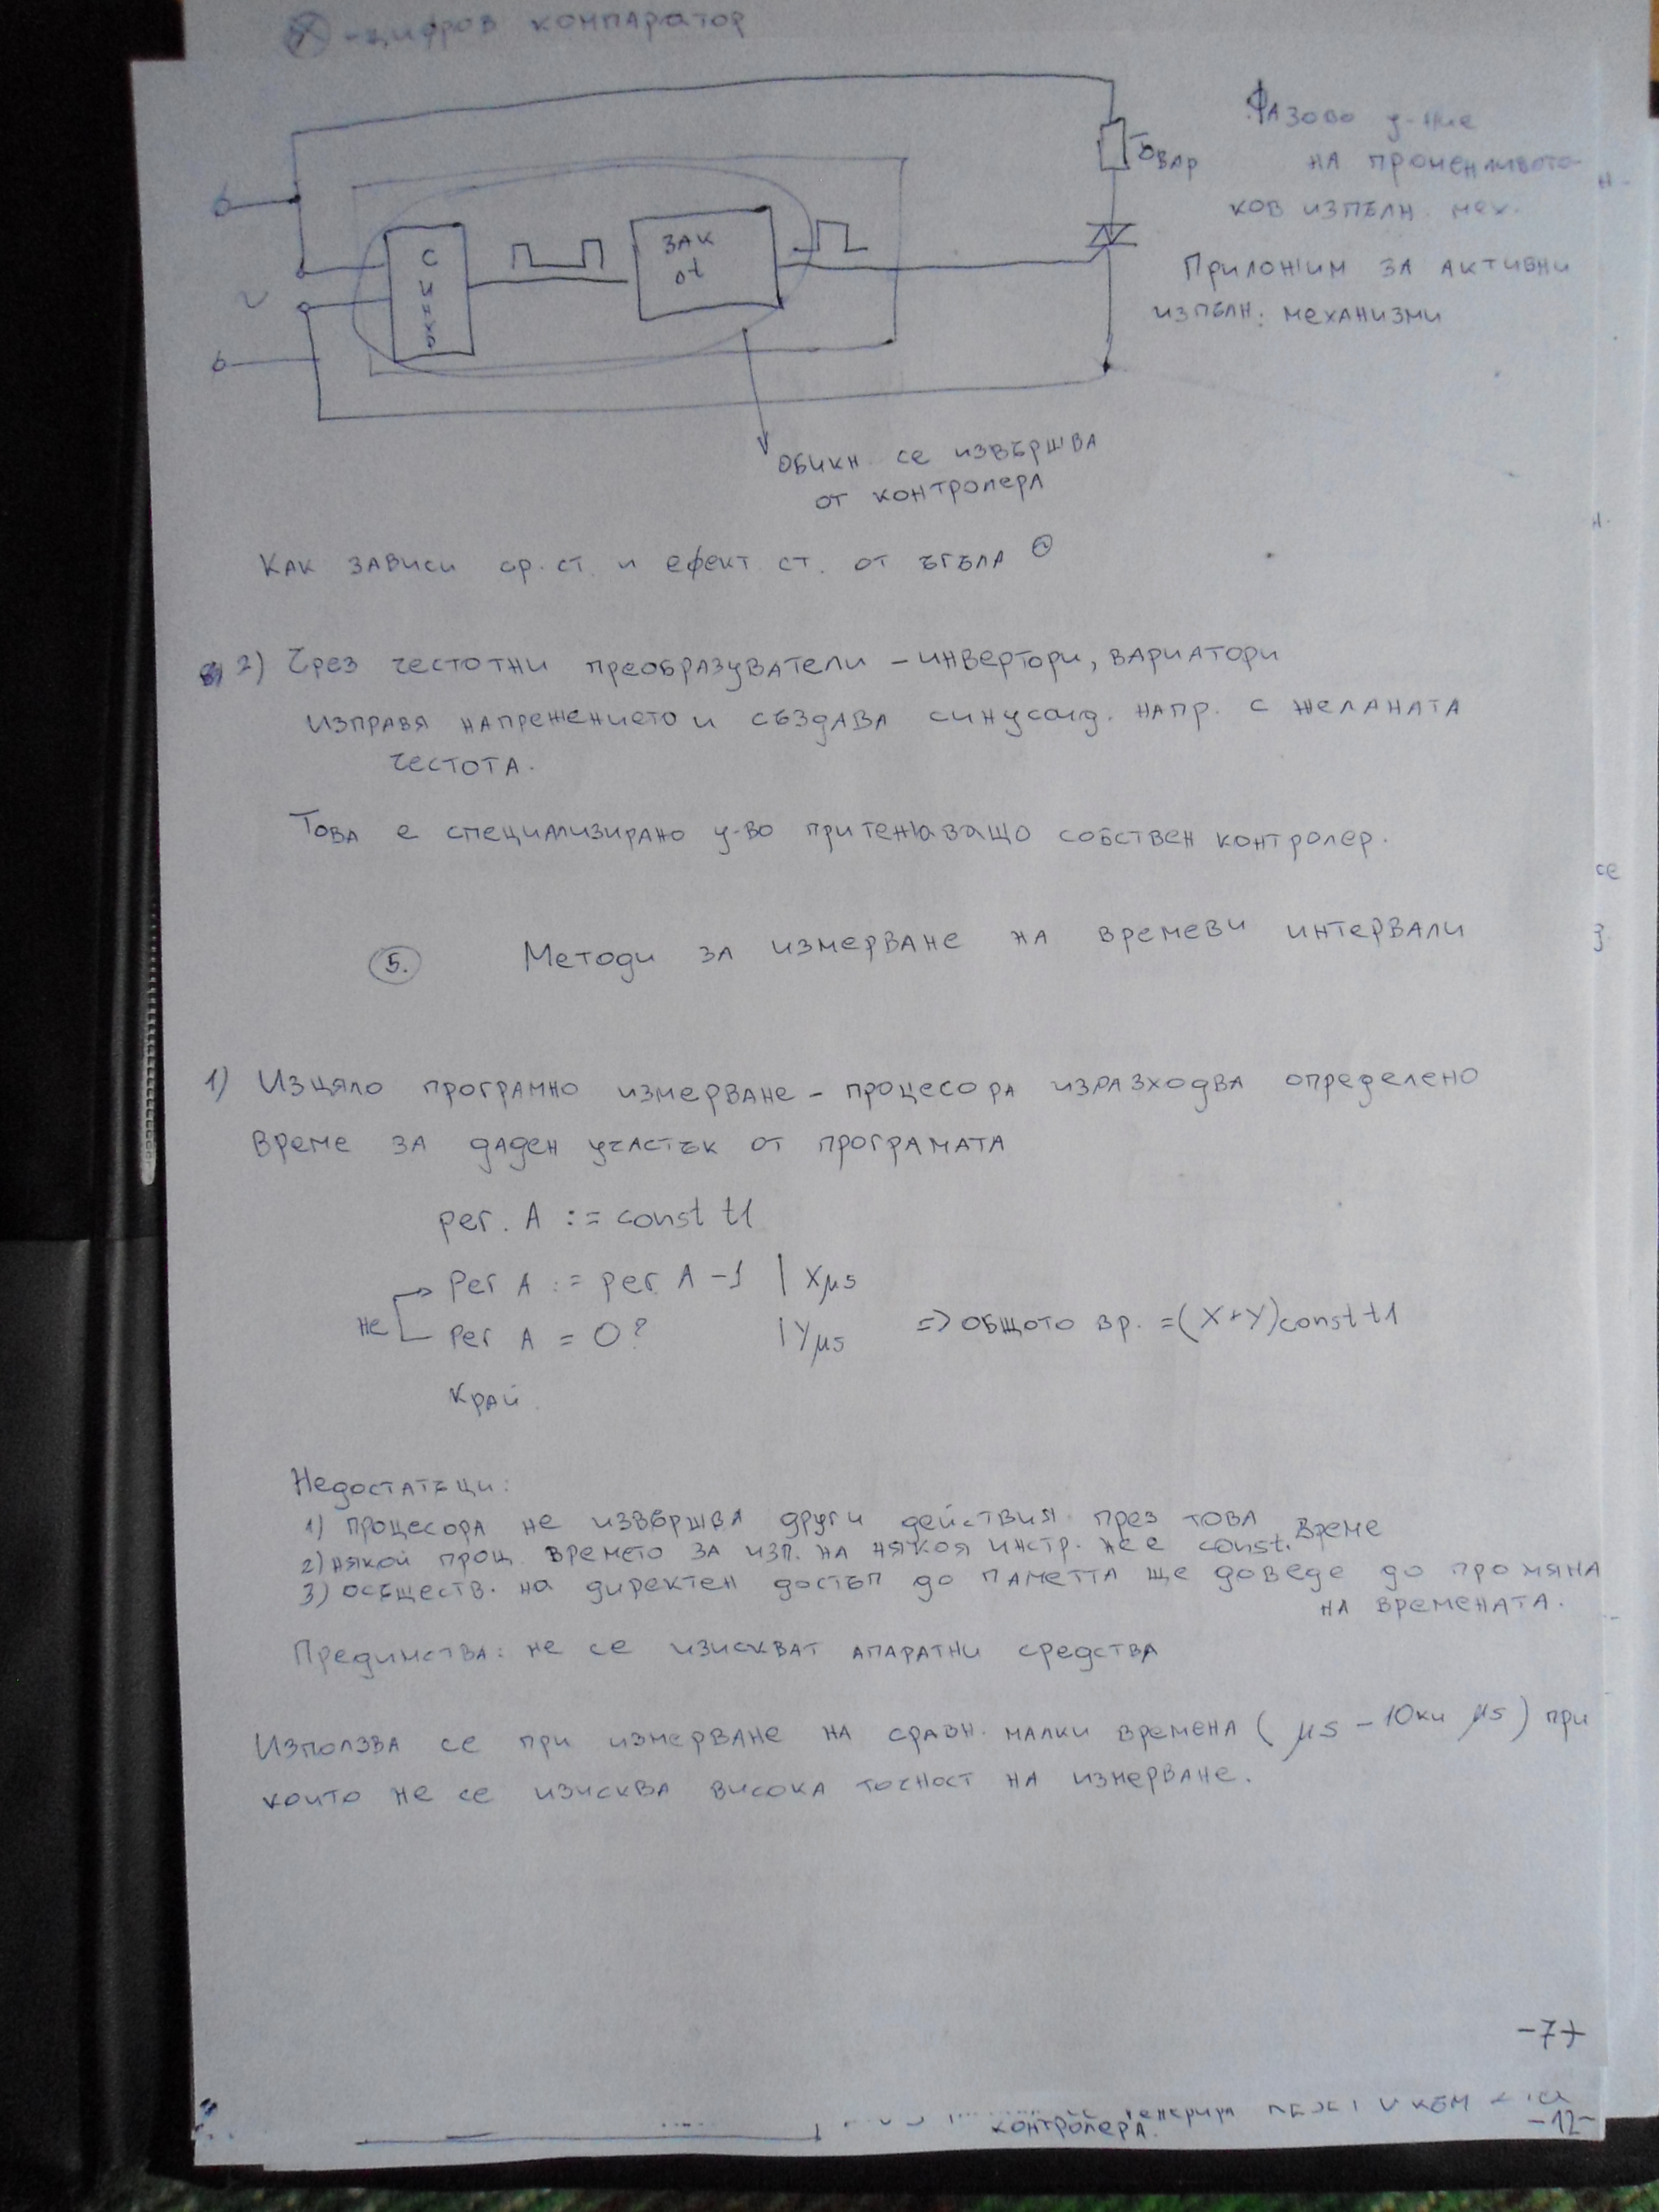 - цифров компаратор
Фазово у-ние
на променливото-
ков изпълн. мех.
Приложим за активни
изпълн. механизми
Товар
СИНХР
ЗАК
от
обикн. се извършва
от контролера
Как зависи ср. ст. и ефект. ст. от ъгъла
2) Чрез честотни преобразуватели - инвертори, вариатори
изправя напрежението и създава синусоид. напр. с желаната
честота.
Това е специализирано у-во притежаващо собствен контролер.
5. Методи за измерване на времеви интервали
1) Изцяло програмно измерване - процесора изразходва определено
време за даден участък от програмата
рег. A := const t1
рег A := рег. A - 1 | X μs
не рег A = 0? | Y μs => общото вр. = (X+Y) const t1
край
Недостатъци:
1) процесора не извършва други действия през това време
2) някой проц. времето за изп. на някоя инстр. не е const.
3) осъществ. на директен достъп до паметта ще доведе до промяна
на времената.
Предимства: не се изискват апаратни средства
Използва се при измерване на сравн. малки времена ( μs - 10ки μs ) при
които не се изисква висока точност на измерване.
-7-
контролера.
-12-